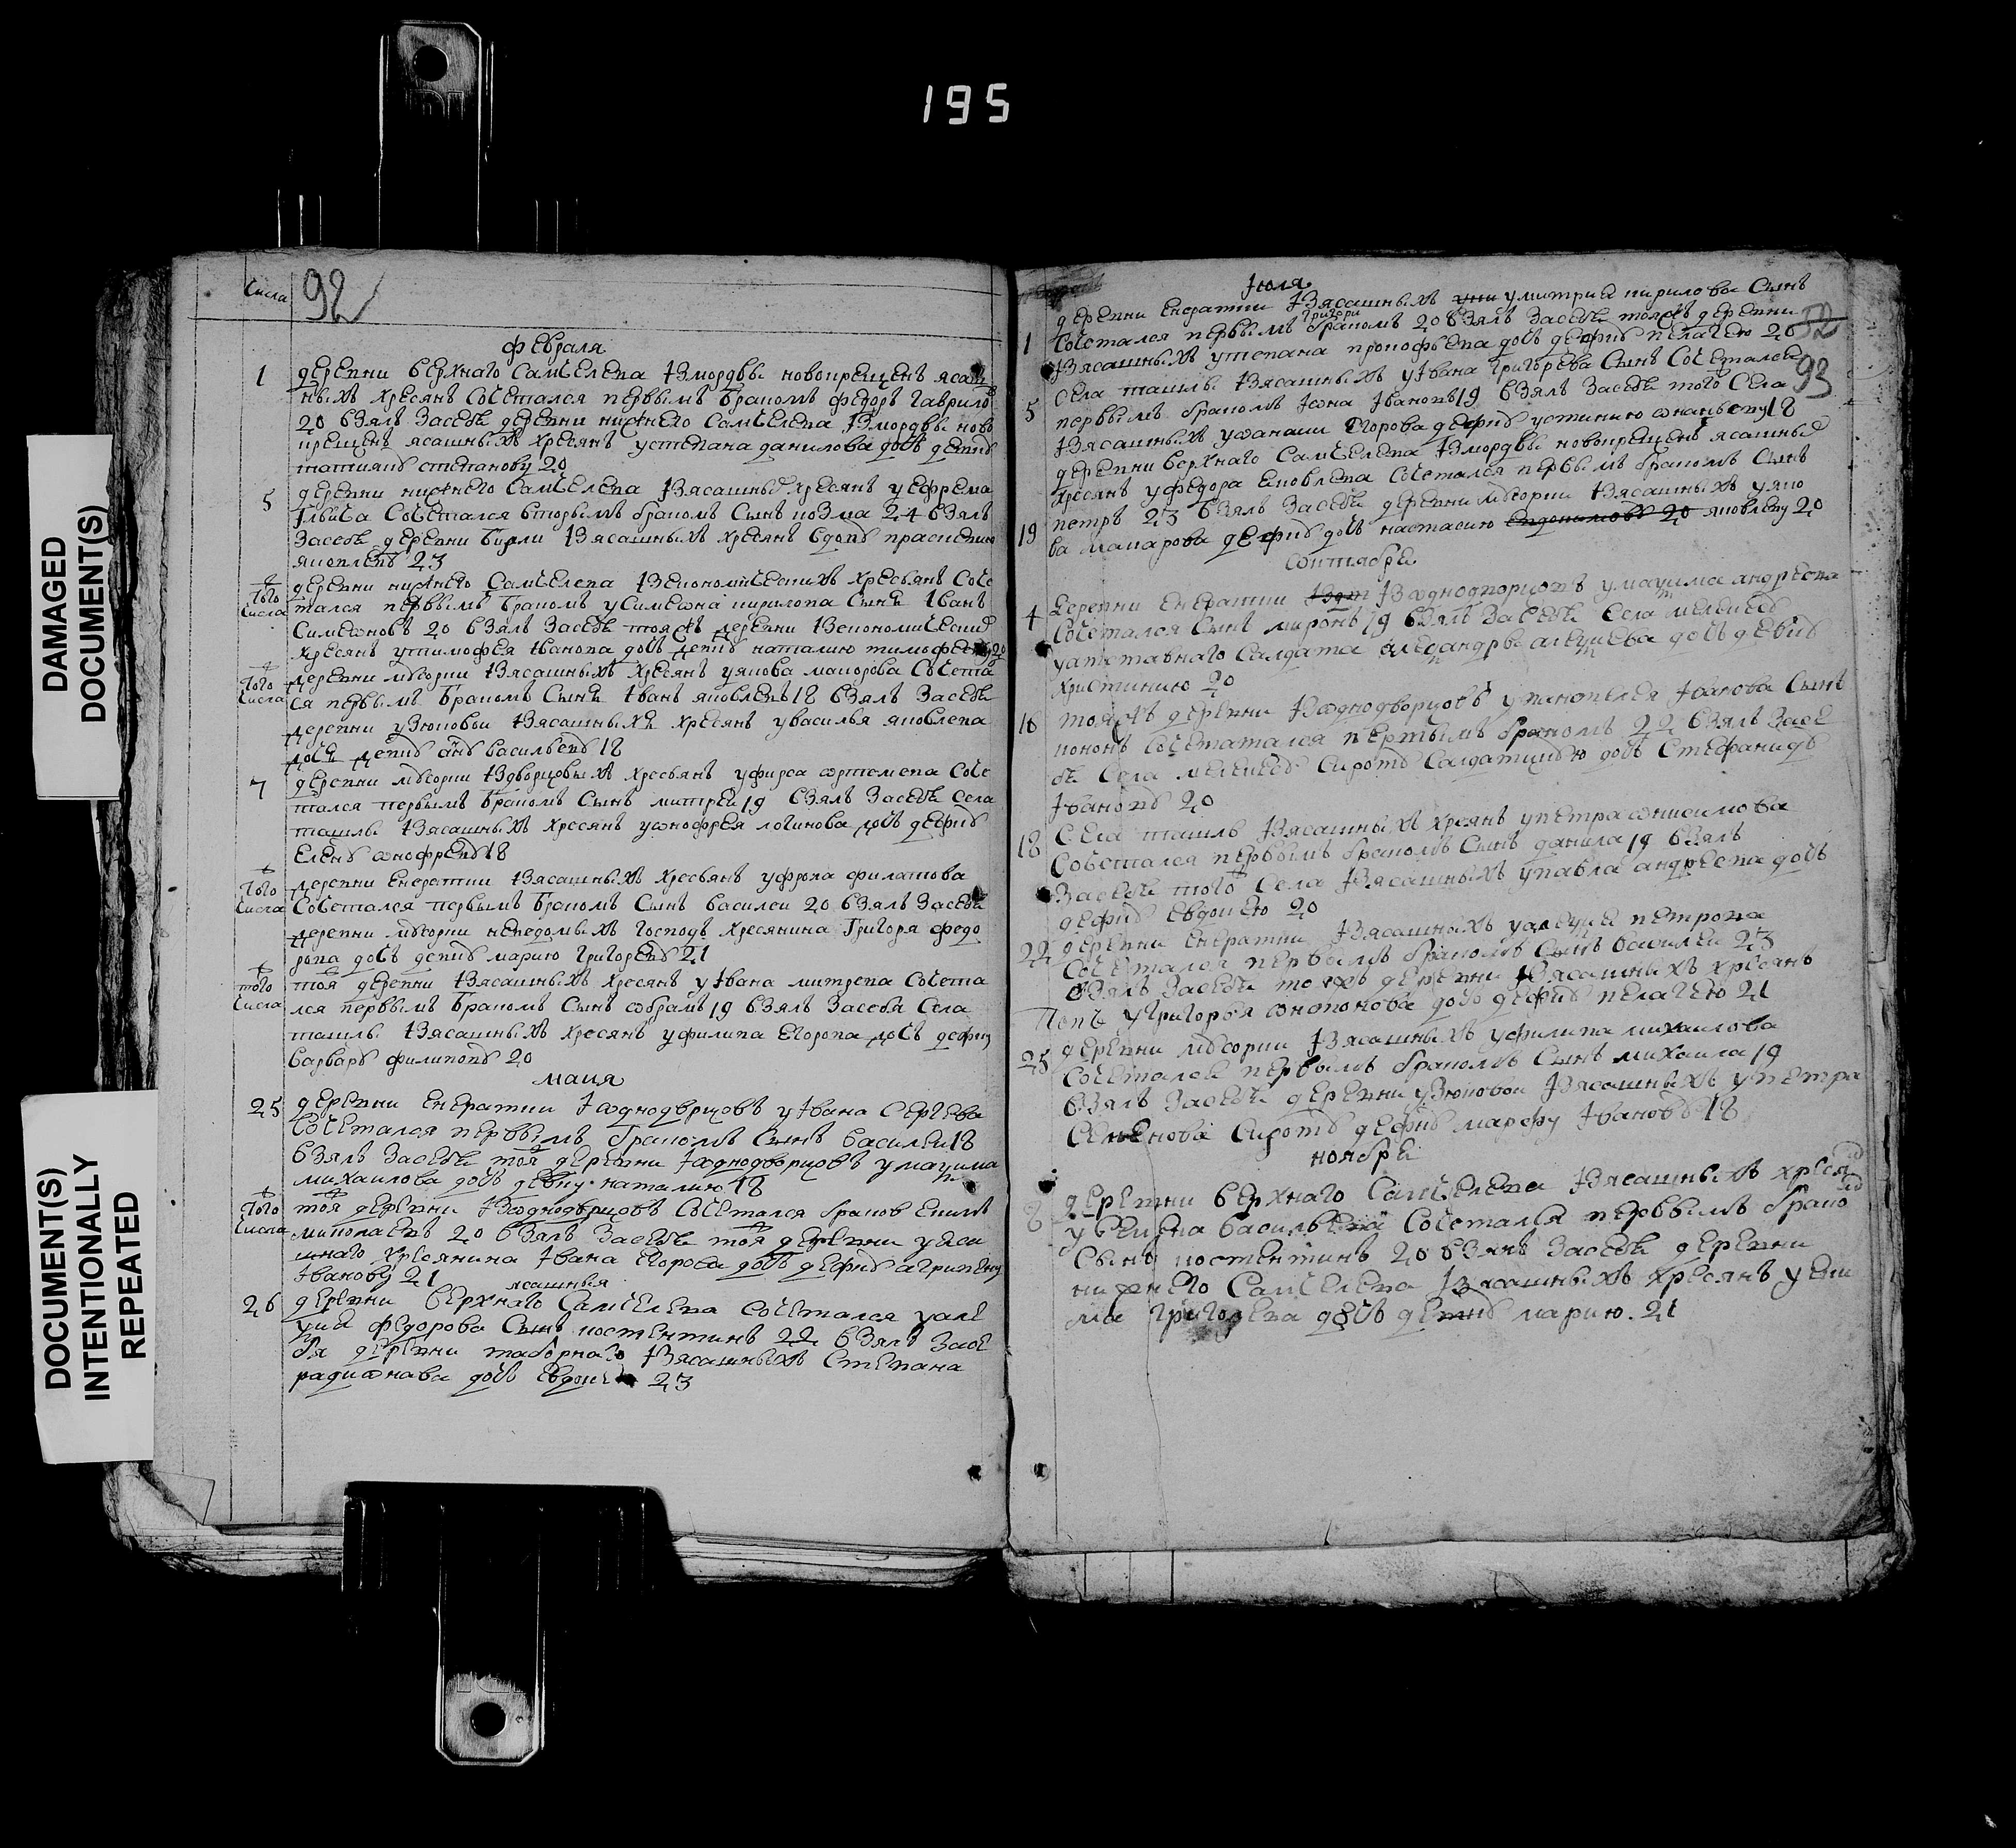 195
DAMAGED
DOCUMENT(S)
DOCUMENT(S)
INTENTIONALLY
REPEATED
Числа
92
февраля
1 деревни верхнаго Санчелева Iзмордвы новокрещенъ ясаш
ныхъ хресянъ Сочетался первымъ бракомъ федоръ гаврилов
20 взялъ засебя деревни нижнего Санчелева Iзмордвы ново
крещенъ ясашныхъ хресянъ устепана данилова дочь девку
татияну степанову 20
5 деревни нижнего Санчелева Iзясашных хресянъ уефрема
Iльича Сочетался вторымъ бракомъ Сынъ козма 24 взялъ
Засебя деревни бирли Iзясашныхъ хресянъ вдову
яковлеву 23
Того числа деревни нижнего Санчелева Iзекономическихъ хресьянъ Соче
тался первымъ бракомъ уСимеона кирилова Сынъ Iванъ
Симеоновъ 20 взялъ засебя тояжъ деревни Iзекономических
хресянъ утимофея Iванова дочь девку наталию тимофееву 20
Того числа деревни Iзясашныхъ хресянъ уякова макарова Сочета
ся первымъ бракомъ Сынъ Iванъ яковлевъ 18 взялъ Засебя
деревни узюковои Iзясашныхъ хресянъ увасилья яковлева
дочь девку анну васильеву 18
7 деревни Iздворцовыхъ хресьянъ уфирса артемева Соче
тался первымъ бракомъ Сынъ митреи 19 взялъ Засебя Села
ташлы Iзясашныхъ хресянъ уонофрея логинова дочь девку
Елену онофреву 18
Того числа деревни Кнератки Iзясашныхъ хресьянъ уфрола филатова
Сочетался первымъ бракомъ Сынъ василеи 20 взялъ Засебя
деревни господъ хресянина Григоря федо
рова дочь девку марию григореву 21
Того числа тоя деревни Iзясашныхъ хресянъ уIвана митрева Сочета
лся первымъ бракомъ Сынъ 19 взялъ Засебя Села
ташлы Iзясашныхъ хресянъ уфилипа Егорова дочь девку
варвару филипову 20
маия
25 деревни Iзоднодворцовъ уIвана Сергеева
Сочетался первымъ бракомъ Сынъ василеи 18
взялъ Засебя тоя деревни Iзоднодворцовъ умаξима
михаилова дочь девку наталию 18
Того числа тоя деревни Iзоднодворцовъ Сочетался браком
миколаевъ 20 взялъ Засебя тоя деревни
хресянина Iвана Егорова дочь девку агрипену
Iванову 21
ясашныя
26 деревни верхнаго Санчелева Сочетался уале
ξия федорова Сынъ костентинъ 22 взялъ Засе
бя деревни таборнаго Iзясашныхъ Степана
радионава дочь 23
Iюля
деревни Iзясашныхъ умитрия кирилова Сынъ
григори
1 Сочетался первымъ бракомъ 20 взялъ Засебя тояжъ деревни
52
Iзясашныхъ устепана прокофьева дочь девку пелагею 20
93
Села ташлы Iзясашныхъ уIвана григорева Сынъ Сочетался
5 первымъ бракомъ Iона Iвановъ 19 взялъ Засебя того Села
Iзясашныхъ уанани Егорова девку устинию ананьеву 18
деревни верхнаго Санчелева Iзмордвы новокрещенъ ясашных
хресянъ уфедора Яковлева Сочетался первымъ бракомъ Сынъ
петръ 23 взялъ Засебя деревни Iзясашныхъ уяко
19 ва макарова девку дочь настасию яковлеву 20
Сентября
4 деревни Iзоднодворцовъ умаξима андреева
Сочетался Сынъ миронъ 19 взялъ Засебя Села
уатставнаго Салдата алеξандры алеξиева дочь девку
христинию 20
16 тояжъ деревни Iзоднодворцовъ Iванова Сынъ
кононъ Сочетатался первымъ бракомъ 22 взялъ Засе
бя Села Сироту Салдатцкую дочь Стефаниду
Iванову 20
18 Села ташлы Iзясашныхъ хресянъ упетра анисимова
Сочетался первымъ бракомъ Сынъ данила 19 взялъ
Засебя того Села Iзясашныхъ упавла андреева дочь
девку евдокею 20
22 деревни Iзясашныхъ уалеξия петрова
Сочетался первымъ бракомъ Сынъ василеи 23
взялъ Засебя тояжъ деревни Iзясашныхъ хресянъ
Попъ угригорья антонова дочь девку пелагею 21
25 деревни Iзясашныхъ уфилипа михаилова
Сочетался первымъ бракомъ Сынъ михаила 19
взялъ Засебя деревни узюковои Iзясашныхъ упетра
Семенова Сироту девку марфу Iванову 18
ноября
8 деревни верхнаго Санчелева Iзясашныхъ хресян
васильева Сочетался первымъ брако
Сынъ костентинъ 20 взялъ Засебя деревни
нижнего Санчелева Iзясашныхъ хресянъ
григорева дочь девку марию. 21